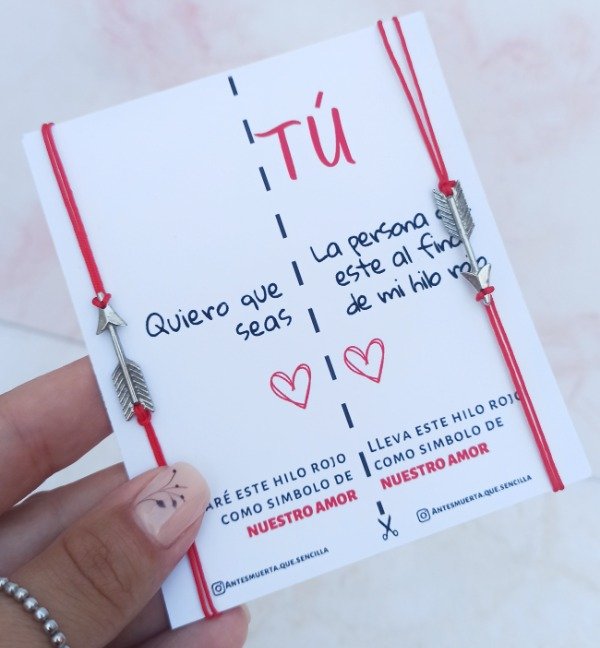 TÚ
Quiero que
seas
La persona
este al fin
de mi hilo rojo
ARÉ ESTE HILO ROJO
COMO SIMBOLO DE
NUESTRO AMOR
@ANTESMUERTA.QUE.SENCILLA
LLEVA ESTE HILO ROJO
COMO SIMBOLO DE
NUESTRO AMOR
@ANTESMUERTA.QUE.SENCILLA